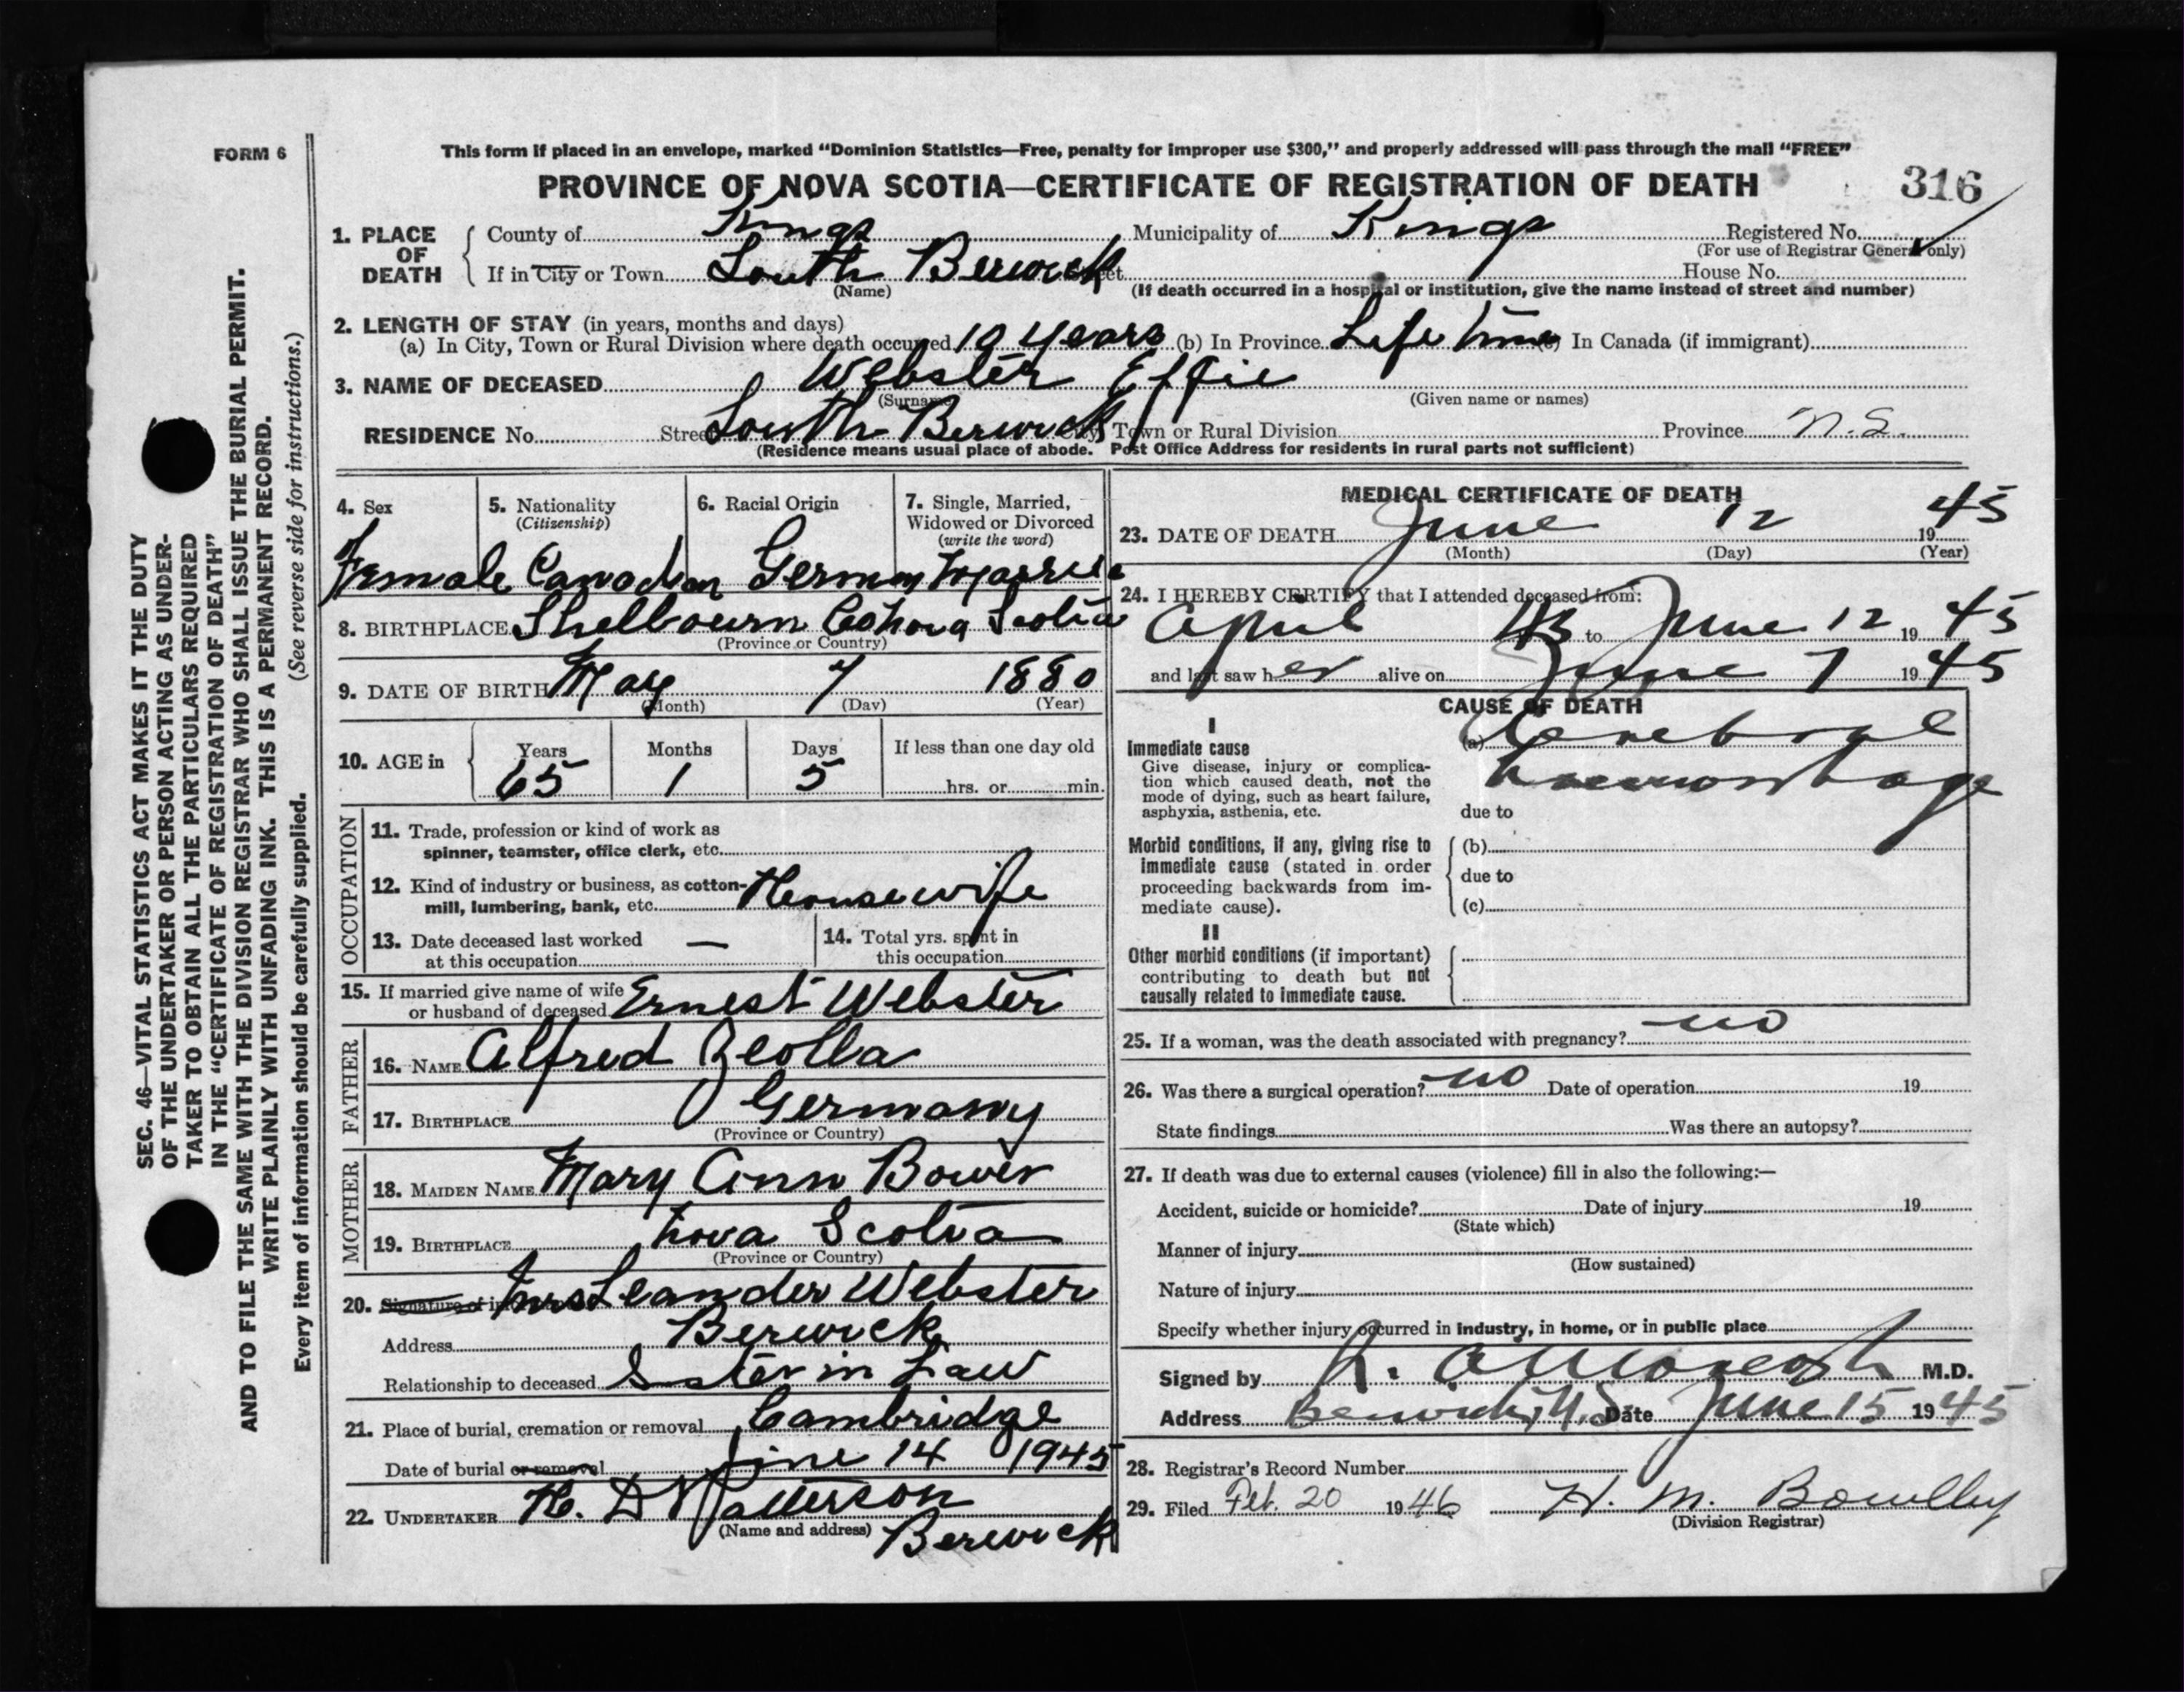 FORM 6
This form if placed in an envelope, marked “Dominion Statistics—Free, penalty for improper use $300,” and properly addressed will pass through the mail “FREE”
PROVINCE OF NOVA SCOTIA—CERTIFICATE OF REGISTRATION OF DEATH
316
1. PLACE OF DEATH
County of Kings Municipality of Kings Registered No.
(For use of Registrar General only)
If in City or Town South Berwick Street House No.
(Name) (If death occurred in a hospital or institution, give the name instead of street and number)
2. LENGTH OF STAY (in years, months and days)
(a) In City, Town or Rural Division where death occurred 10 years (b) In Province Life time (c) In Canada (if immigrant)
3. NAME OF DECEASED Webster Effie
(Surname) (Given name or names)
RESIDENCE No. Street South Berwick City, Town or Rural Division Province N.S.
(Residence means usual place of abode. Post Office Address for residents in rural parts not sufficient)
4. Sex
Female
5. Nationality
(Citizenship)
Canadian
6. Racial Origin
German
7. Single, Married,
Widowed or Divorced
(write the word)
Married
8. BIRTHPLACE Shelbourn Co Nova Scotia
(Province or Country)
9. DATE OF BIRTH May 7 1880
(Month) (Day) (Year)
10. AGE in
Years Months Days If less than one day old
65 1 5 hrs. or min.
OCCUPATION
11. Trade, profession or kind of work as
spinner, teamster, office clerk, etc.
12. Kind of industry or business, as cotton-
mill, lumbering, bank, etc. Housewife
13. Date deceased last worked
at this occupation —
14. Total yrs. spent in
this occupation
15. If married give name of wife
or husband of deceased Ernest Webster
FATHER
16. NAME Alfred Zeolla
17. BIRTHPLACE Germany
(Province or Country)
MOTHER
18. MAIDEN NAME Mary Ann Bower
19. BIRTHPLACE Nova Scotia
(Province or Country)
20. Signature of Mrs Leander Webster
Address Berwick
Relationship to deceased Sister in Law
21. Place of burial, cremation or removal Cambridge
Date of burial or removal June 14 1945
22. UNDERTAKER H. D Patterson
(Name and address) Berwick
MEDICAL CERTIFICATE OF DEATH
23. DATE OF DEATH June 12 1945
(Month) (Day) (Year)
24. I HEREBY CERTIFY that I attended deceased from:
April 43 to June 12 1945
and last saw her alive on June 7 1945
CAUSE OF DEATH
I
Immediate cause
Give disease, injury or complica-
tion which caused death, not the
mode of dying, such as heart failure,
asphyxia, asthenia, etc.
(a) Cerebral
haemorrhage
due to
Morbid conditions, if any, giving rise to
immediate cause (stated in order
proceeding backwards from im-
mediate cause).
(b)
due to
(c)
II
Other morbid conditions (if important)
contributing to death but not
causally related to immediate cause.
25. If a woman, was the death associated with pregnancy? no
26. Was there a surgical operation? no Date of operation 19
State findings Was there an autopsy?
27. If death was due to external causes (violence) fill in also the following:—
Accident, suicide or homicide? Date of injury 19
(State which)
Manner of injury
(How sustained)
Nature of injury
Specify whether injury occurred in industry, in home, or in public place
Signed by M.D.
Address Berwick, N.S. Date June 15 1945
28. Registrar's Record Number
29. Filed Feb. 20 1946 H. M.
(Division Registrar)
SEC. 46—VITAL STATISTICS ACT MAKES IT THE DUTY
OF THE UNDERTAKER OR PERSON ACTING AS UNDER-
TAKER TO OBTAIN ALL THE PARTICULARS REQUIRED
IN THE “CERTIFICATE OF REGISTRATION OF DEATH”
AND TO FILE THE SAME WITH THE DIVISION REGISTRAR WHO SHALL ISSUE THE BURIAL PERMIT.
WRITE PLAINLY WITH UNFADING INK. THIS IS A PERMANENT RECORD.
Every item of information should be carefully supplied. (See reverse side for instructions.)